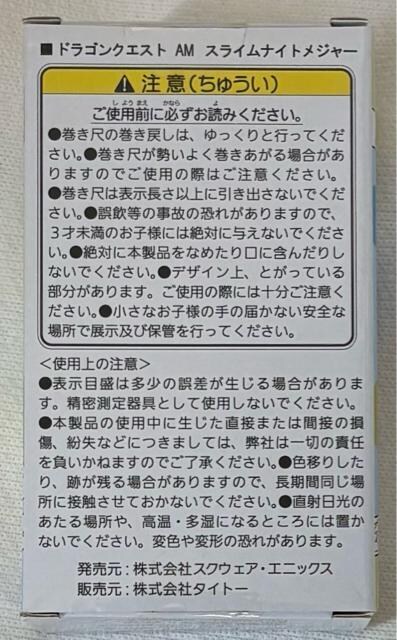 ■ドラゴンクエスト AM スライムナイトメジャー
注意(ちゅうい)
ご使用前に必ずお読みください。
●巻き尺の巻き戻しは、ゆっくりと行ってくだ
さい。●巻き尺が勢いよく巻きあがる場合があ
りますのでご使用の際はご注意ください。
●巻き尺は表示長さ以上に引き出さないでくだ
さい。●誤飲等の事故の恐れがありますので、
3才未満のお子様には絶対に与えないでくださ
い。●絶対に本製品をなめたり口に含んだりし
ないでください。●デザイン上、とがっている
部分があります。ご使用の際には十分ご注意く
ださい。●小さなお子様の手の届かない安全な
場所で展示及び保管を行ってください。
<使用上の注意>
●表示目盛は多少の誤差が生じる場合がありま
す。精密測定器具として使用しないでください。
●本製品の使用中に生じた直接または間接の損
傷、紛失などにつきましては、弊社は一切の責任
を負いかねますのでご了承ください。●色移りした
り、跡が残る場合がありますので、長期間同じ場
所に接触させておかないでください。●直射日光の
あたる場所や、高温・多湿になるところには置か
ないでください。変色や変形の恐れがあります。
発売元:株式会社スクウェア・エニックス
販売元:株式会社タイトー